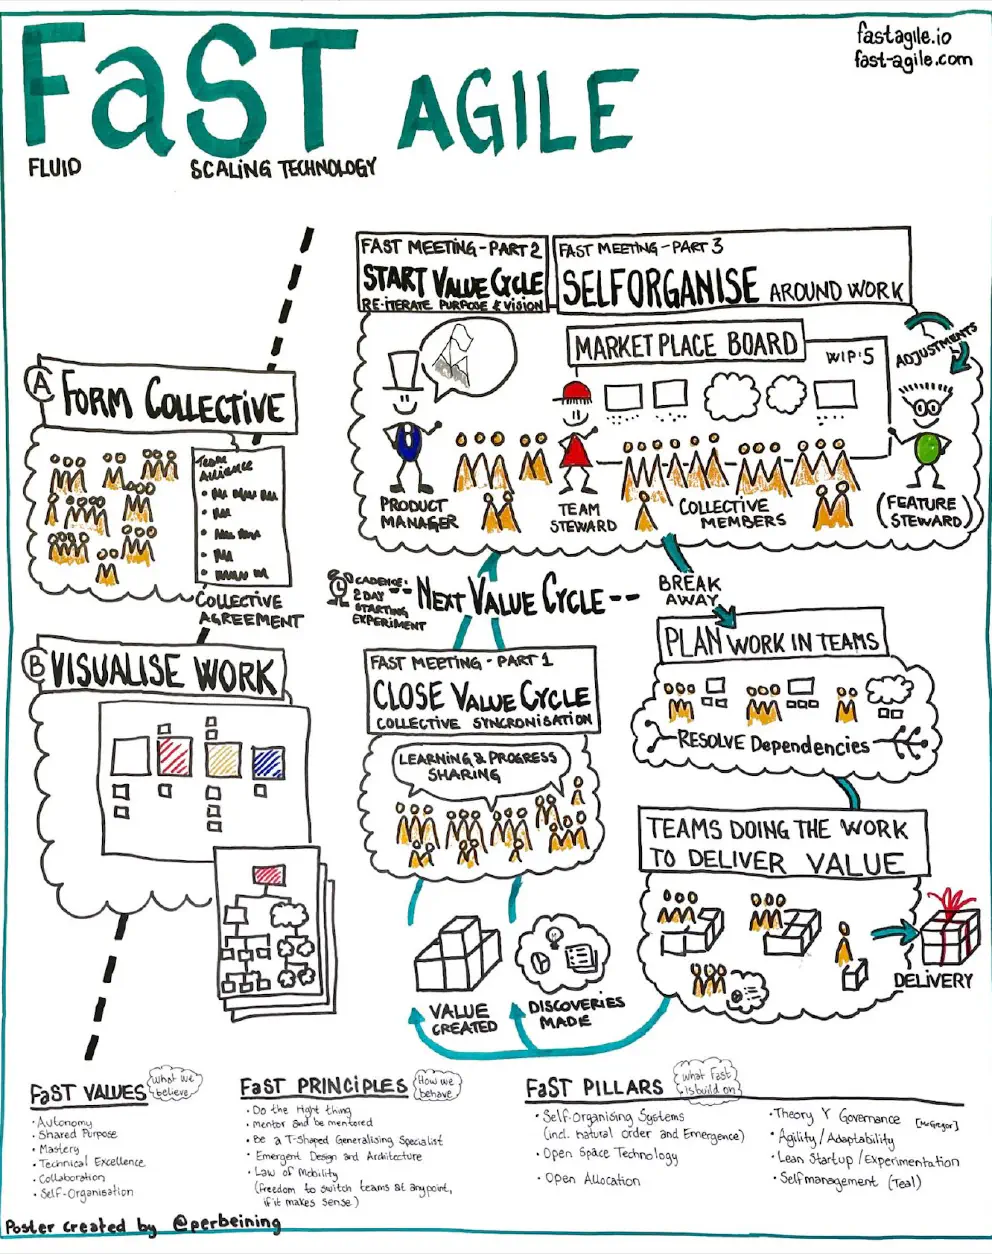 fastagile.io
fast-agile.com
FaST AGILE
FLUID
SCALING TECHNOLOGY
FAST MEETING - PART 2
START VALUE CYCLE
RE-ITERATE PURPOSE & VISION
FAST MEETING - PART 3
SELFORGANISE AROUND WORK
MARKET PLACE BOARD
WIP:5
ADJUSTMENTS
PRODUCT
MANAGER
TEAM
STEWARD
COLLECTIVE
MEMBERS
(FEATURE
STEWARD)
A FORM COLLECTIVE
Team
Alliance
COLLECTIVE
AGREEMENT
B VISUALISE WORK
CADENCE:
2 DAY
STARTING
EXPERIMENT
-- NEXT VALUE CYCLE --
BREAK
AWAY
PLAN WORK IN TEAMS
RESOLVE Dependencies
FAST MEETING - PART 1
CLOSE VALUE CYCLE
COLLECTIVE SYNCRONISATION
LEARNING & PROGRESS
SHARING
TEAMS DOING THE WORK
TO DELIVER VALUE
DELIVERY
VALUE
CREATED
DISCOVERIES
MADE
FaST VALUES
What we
believe
• Autonomy
• Shared Purpose
• Mastery
• Technical Excellence
• Collaboration
• Self-Organisation
FaST PRINCIPLES
How we
behave
• Do the right thing
• Mentor and be mentored
• Be a T-Shaped Generalising Specialist
• Emergent Design and Architecture
• Law of Mobility
(freedom to switch teams at anypoint,
if it makes sense)
FaST PILLARS
what Fast
is build on
• Self-Organising Systems
(incl. natural order and Emergence)
• Open Space Technology
• Open Allocation
• Theory Y Governance [McGregor]
• Agility/Adaptability
• Lean Startup/Experimentation
• Selfmanagement (Teal)
Poster created by @perbeining